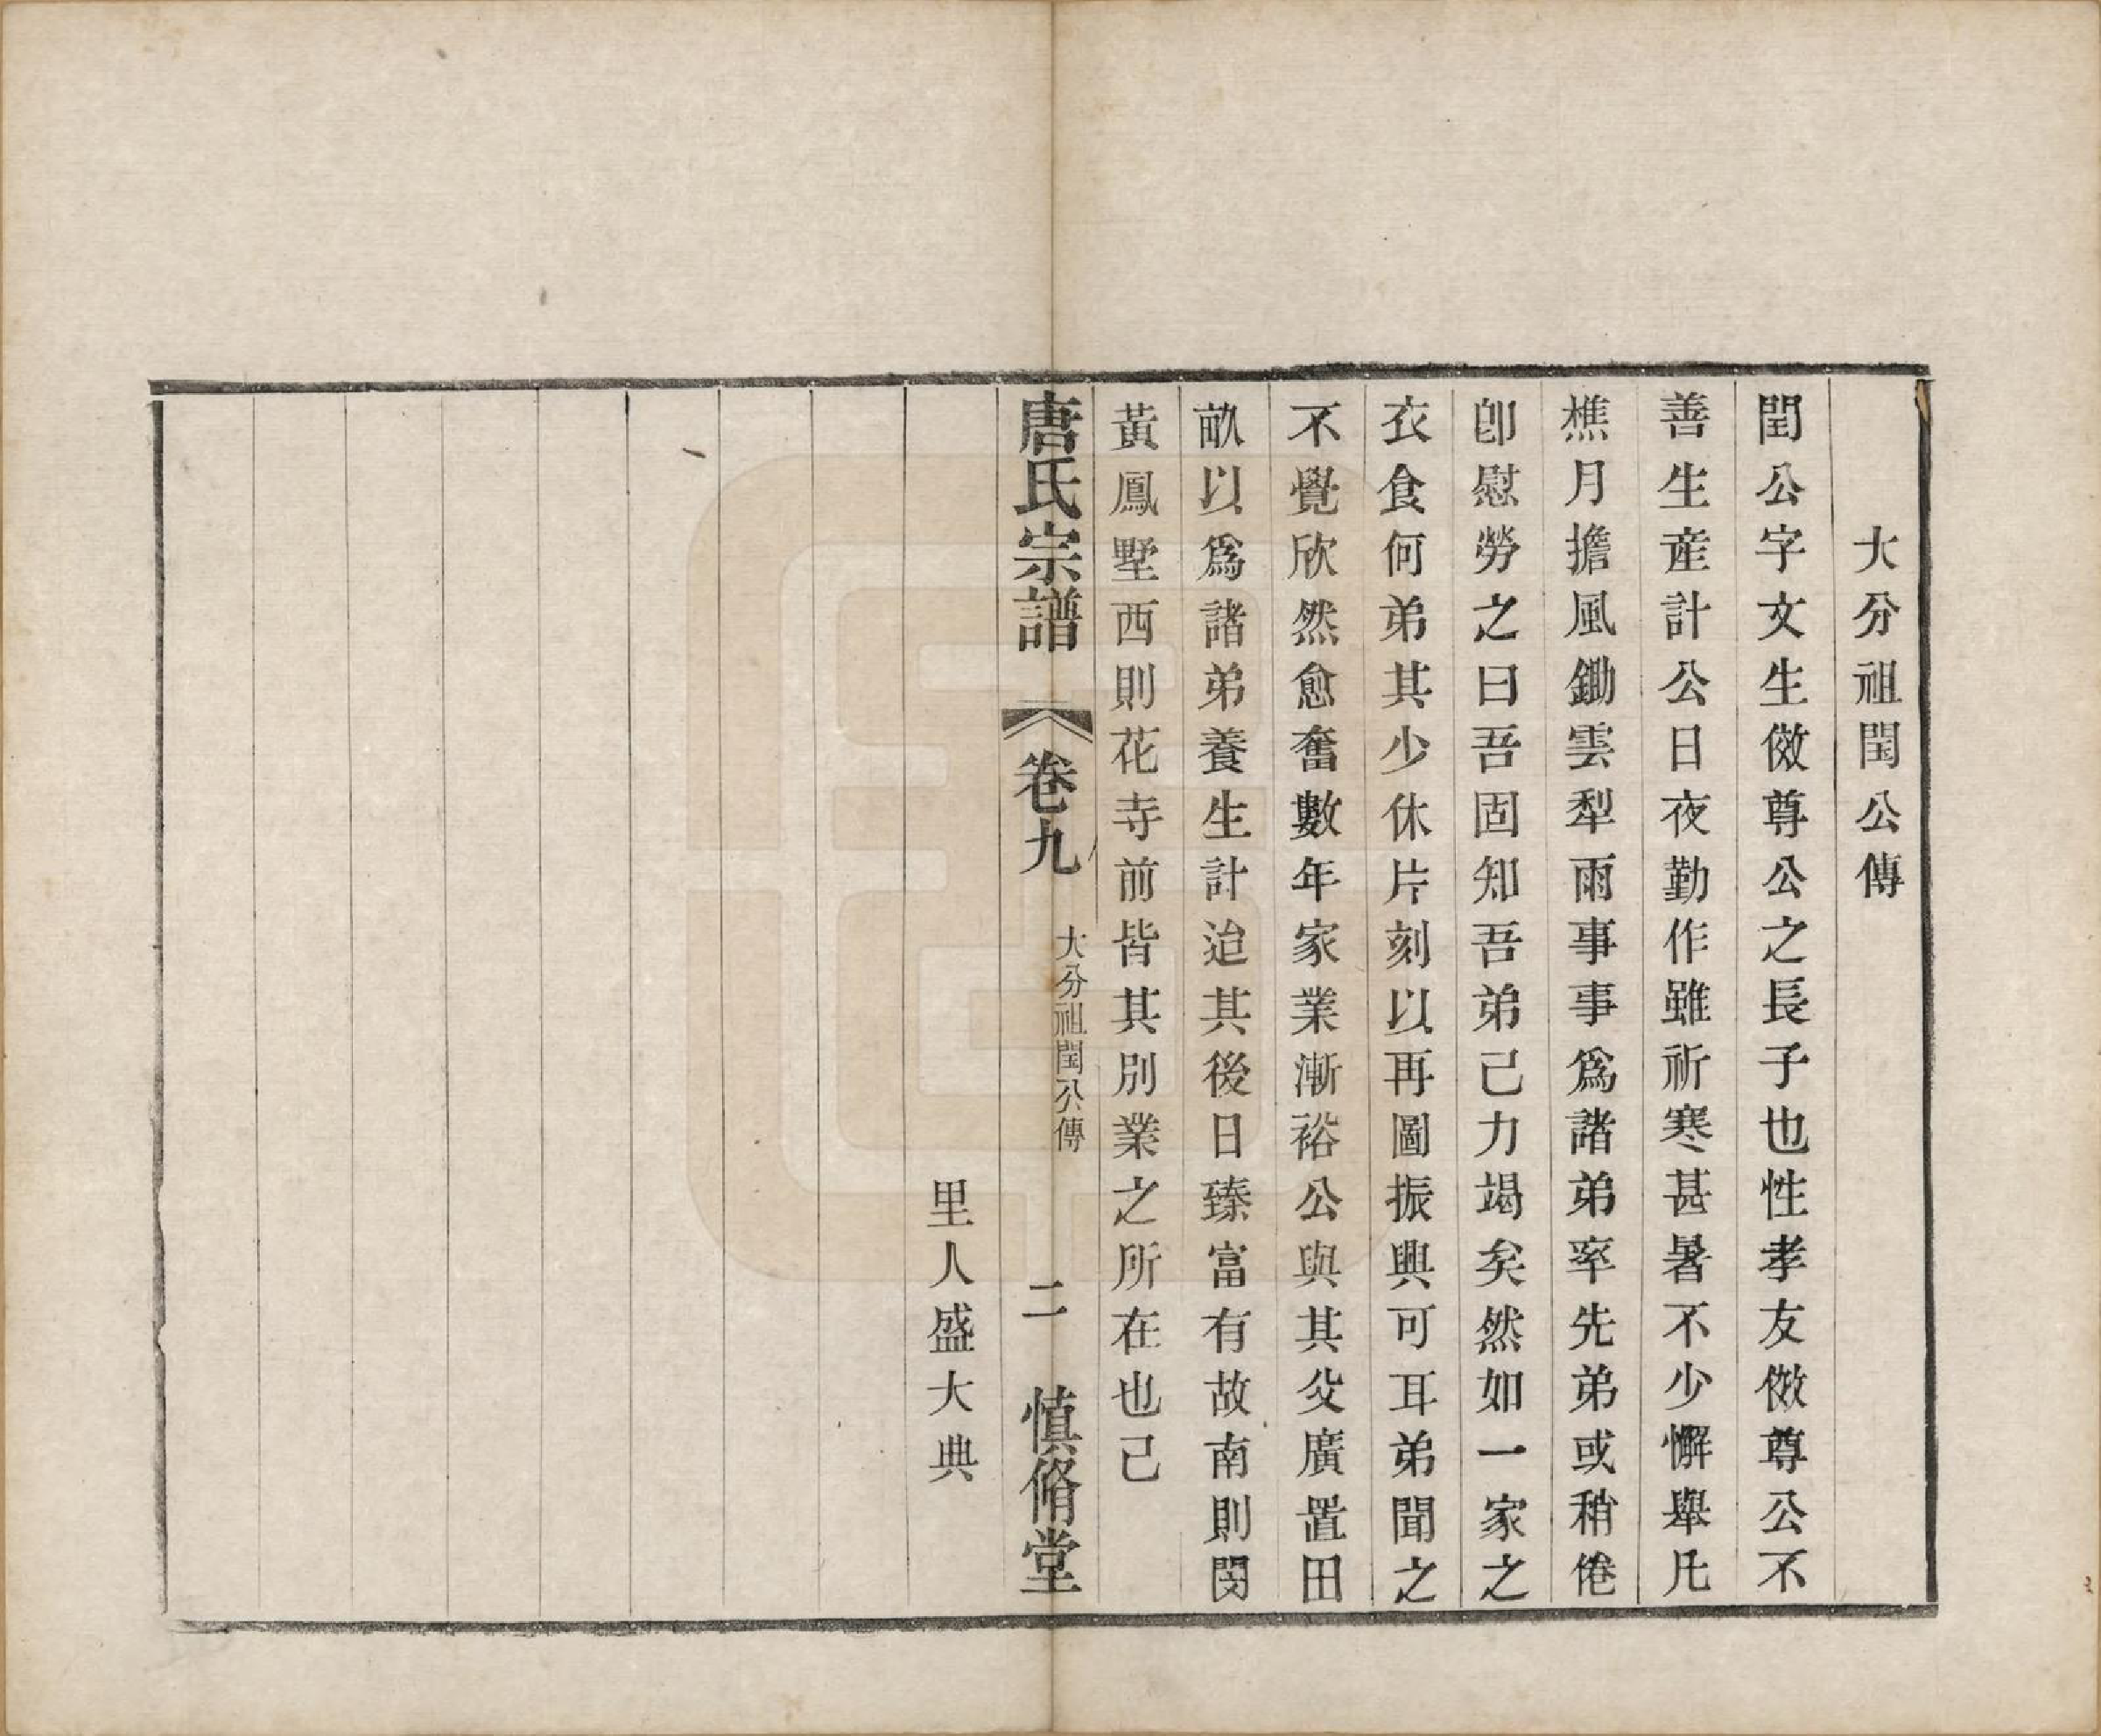 大分祖閏公傳
閏公字文生儆尊公之長子也性孝友儆尊公不
善生産計公日夜勤作雖祈寒甚暑不少懈舉凡
樵月擔風鋤雲犁雨事事爲諸弟率先弟或稍倦
卽慰勞之曰吾固知吾弟己力竭矣然如一家之
衣食何弟其少休片刻以再圖振興可耳弟聞之
不覺欣然愈奮數年家業漸裕公與其父廣置田
畝以爲諸弟養生計迨其後日臻富有故南則閔
黃鳳墅西則花寺前皆其別業之所在也己
唐氏宗譜
卷九
大分祖閏公傳
二
慎脩堂
里人盛大典